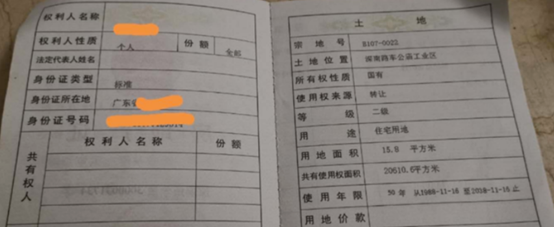 权利人名称
权利人性质 个人 份额 全部
法定代表人姓名
身份证类型 标准
身份证所在地 广东省
身份证号码
共有权人
权利人名称 份额
土地
宗地号 B107-0022
土地位置 深南路车公庙工业区
所有权性质 国有
使用权来源 转让
等级 二级
用途 住宅用地
用地面积 15.8 平方米
共有使用权面积 20610.6平方米
使用年限 50年 从1988-11-16 至2038-11-15止
用地价款